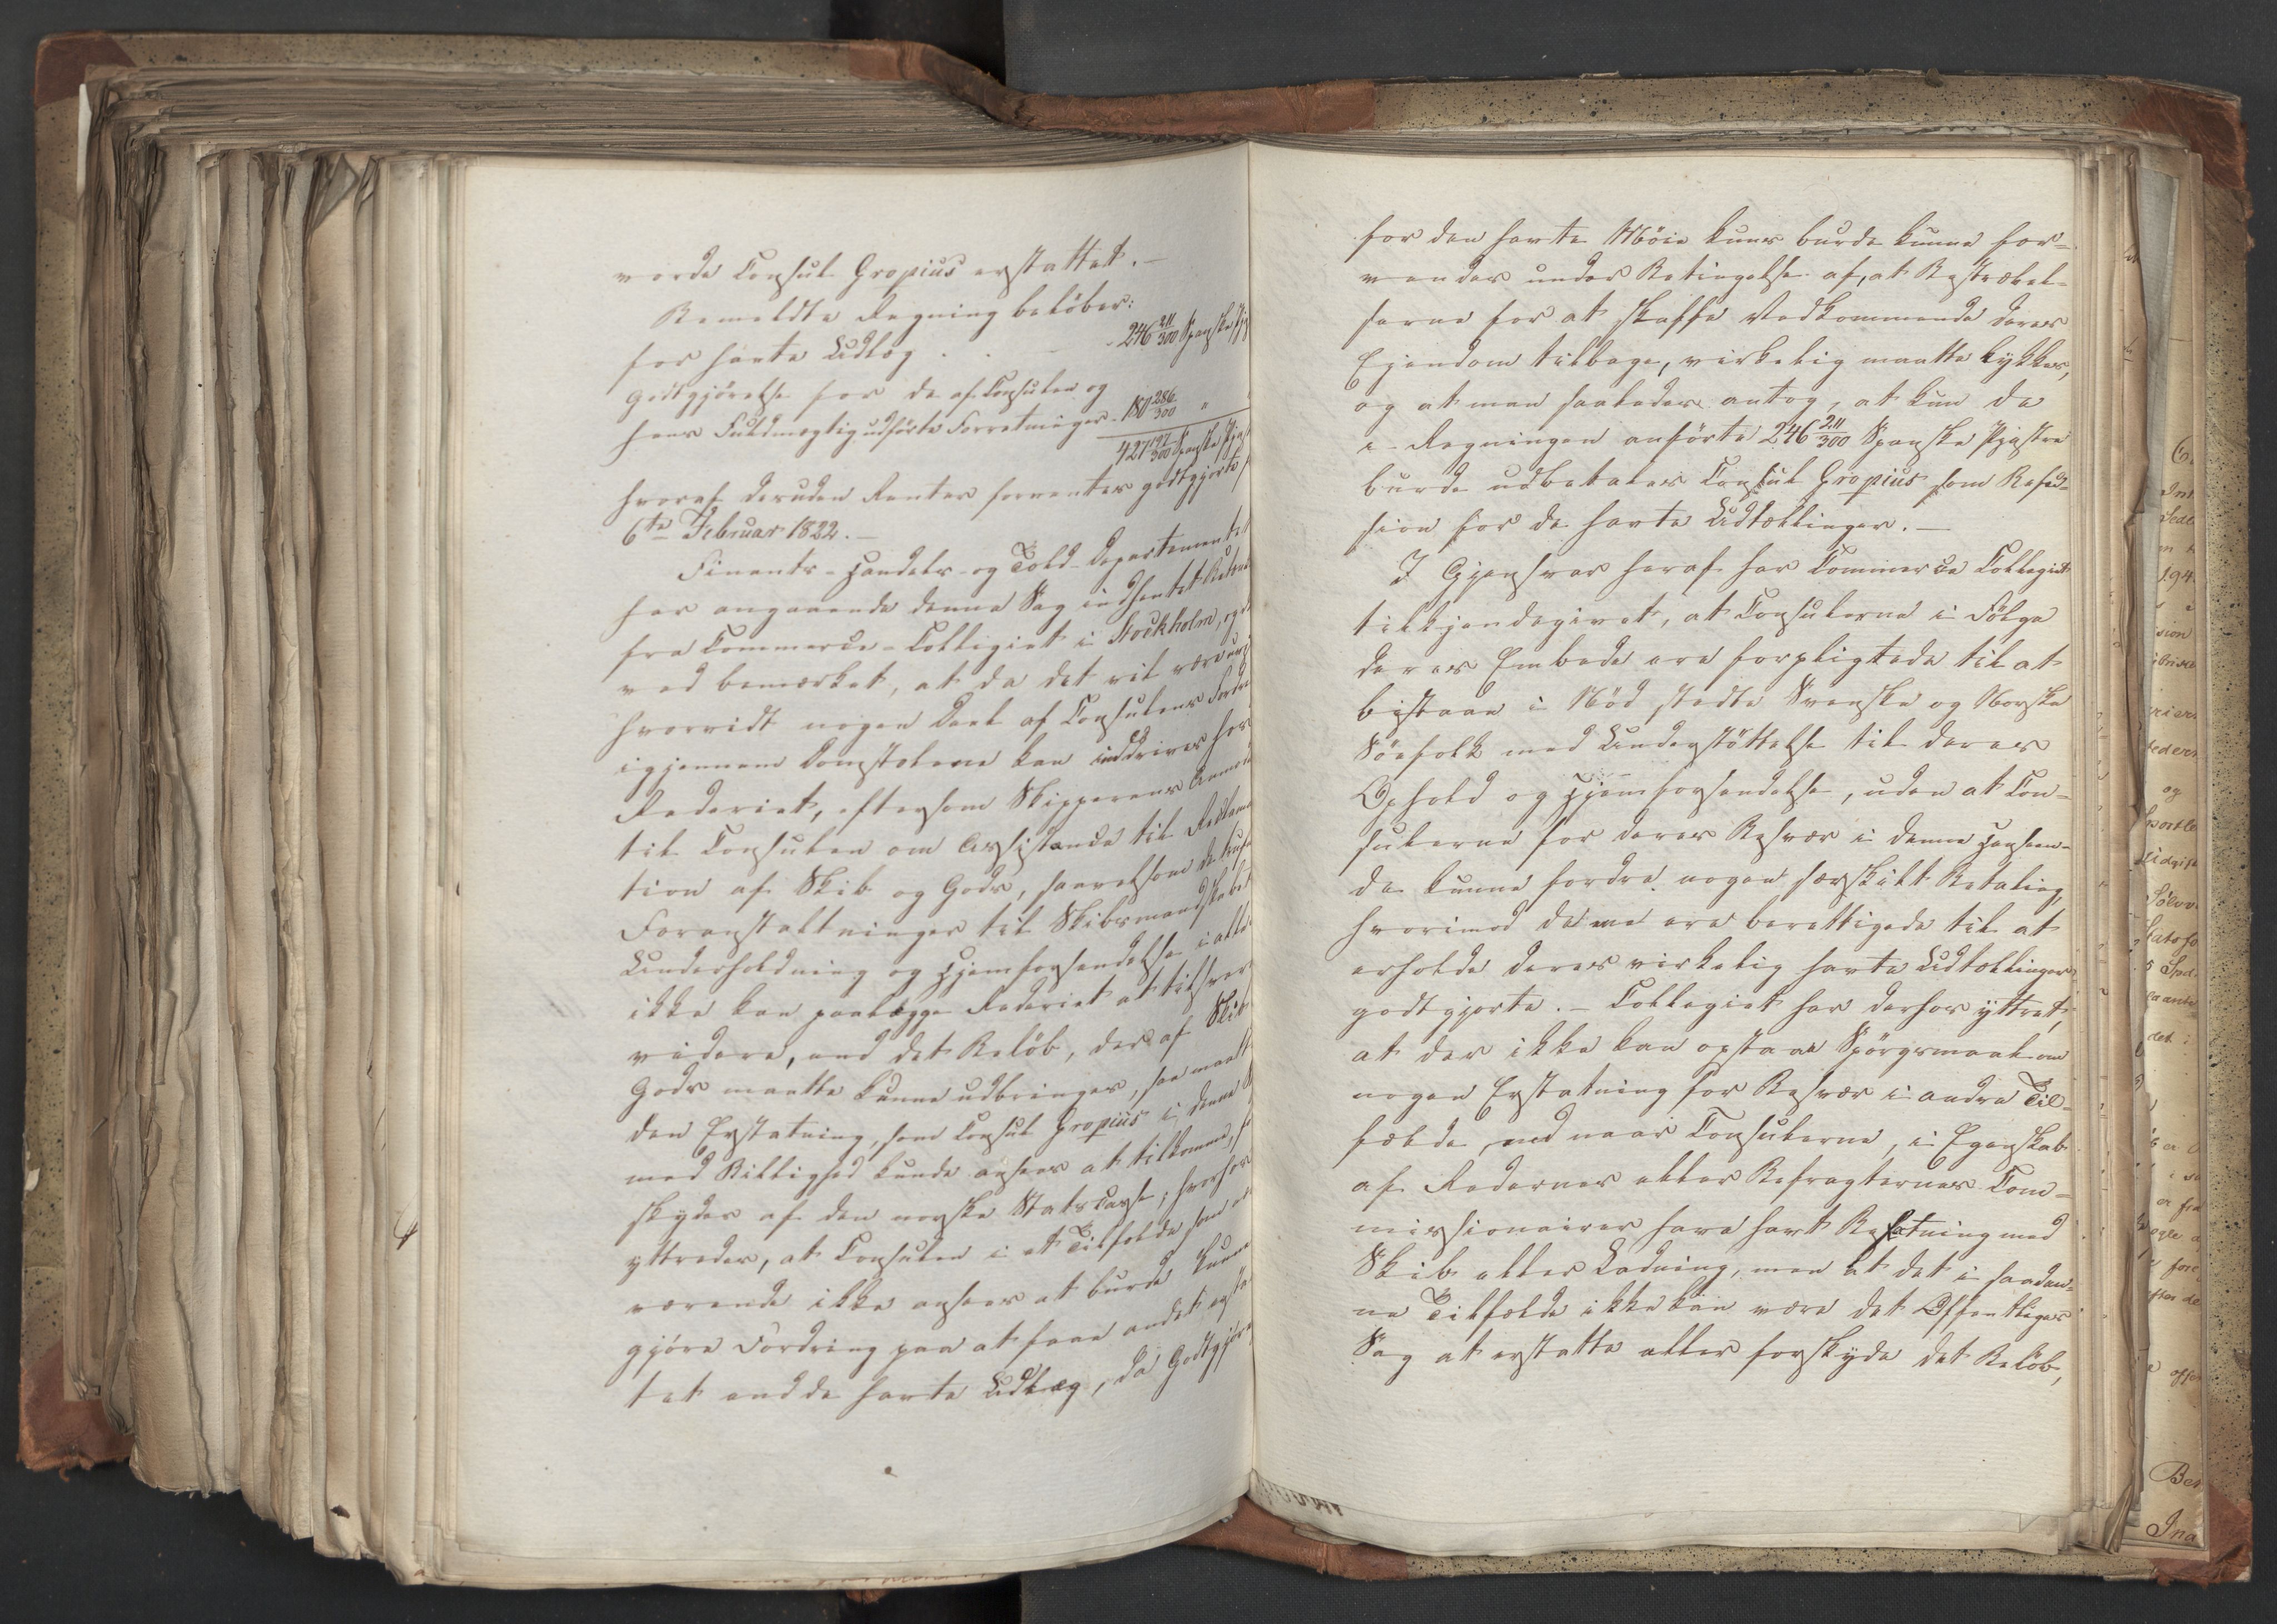 vorde Consul Gropius erstattet.—
Bemeldte Regning beløber:
for havte Udlæg . . - 246 211/300 Spanske Pja
Godtgjörelse for de af Consulen og
hans Fuldmægtig udförte Forretninger - 180 286/300 "
427 197/300 Spanske Pja
hvoraf desuden Renter forventes godtgjorte f
6te Februar 1822.—
Finants- Handels- og Told-Departementet
har angaaende denne Sag indhentet
fra Commerce-Collegiet i Stockholm, og
ved bemærket, at da det vil være
hvorvidt nogen Deel af Consulens Fordr
igjennem Domstolene kan inddrives hos
Rederiet, eftersom Skipperens Anmod
til Consulen om Assistance til Reclama
tion af Skib og Gods, saavelsom de trufne
Foranstaltninger til Skibsmandskabets
Underholdning og Hjemforsendelse i alle
ikke kan paalægge Rederiet at tilsvare
videre, end det Beløb, der af Skib
Gods maatte kunne udbringes, saa maatte
den Erstatning, som Consul Gropius i denne S
med Billighed kunde ansees at tilkomme, for
skydes af den norske Statscasse; hvorhos
yttredes, at Consulen i et Tilfælde som
værende ikke ansees at burde kunne
gjöre Fordring paa at faae andet ersta
tet end de havte Udlæg, da Godtgjörel
for den havte Möie kuns burde kunne for=
ventes under Betingelse af, at Bestræbel=
serne for at skaffe Vedkommende deres
Ejendom tilbage, virkelig maatte lykkes,
og at man saaledes antog, at kun de
i Regningen anførte 246 211/300 Spanske Pjastre
burde udbetales Consul Gropius som Refu=
sion for de havte Udtællinger.—
I Gjensvar heraf har Commerce Collegiet
tilkjendegivet, at Consulerne i Følge
deres Embede ere forpligtede til at
bistaae i Nød stedte Svenske og Norske
Söefolk med Understöttelse til deres
Ophold og Hjemforsendelse, uden at Con=
sulerne for deres Besvær i denne Henseen=
de kunne fordre nogen særskilt Betaling,
hvorimod de ere berettigede til at
erholde deres virkelig havte Udtællinger
godtgjorte.— Collegiet har derhos yttret,
at der ikke kan opstaae Spörgsmaal om
nogen Erstatning for Besvær i andre Til=
fælde, end naar Consulerne, i Egenskab
af Redernes eller Befragternes Com=
missionairer have havt Befatning med
Skib eller Ladning, men at det i saadan=
ne Tilfælde ikke kan være det Offentliges
Sag at erstatte eller forskyde det Beløb,